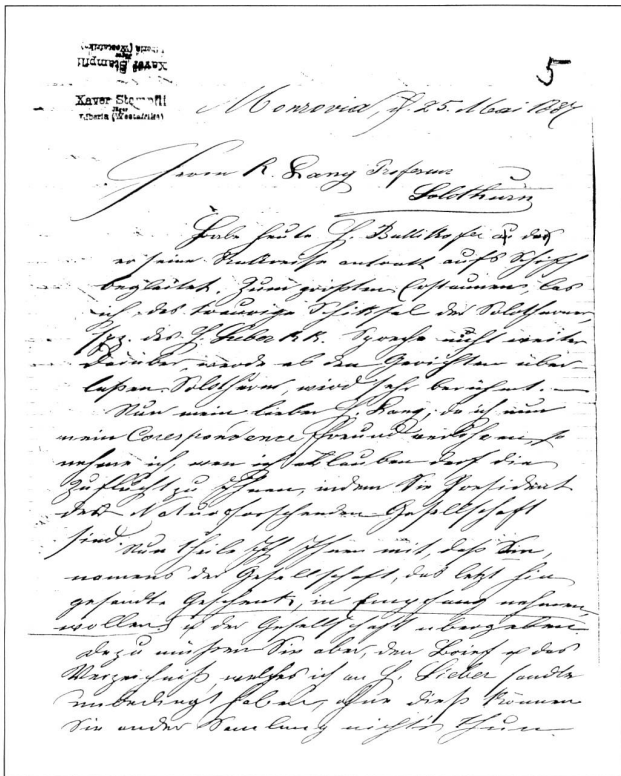 5
Xaver Stampfli
Jäger
Liberia (Westafrika)
Xaver Stampfli
Jäger
Liberia (Westafrika)
Monrovia, d. 25. Mai 1887
Herrn R. Lang Professor
Solothurn
Habe heute H. Büttikofer
er seine Rückreise antratt aufs Schiff
begleitet. Zum größten Erstaunen, las
ich, das traurige Schiksal der Solothurner
des H. Spreche nicht weiter
darüber, werde es den Gerichten über-
laßen. Solothurn, wird sehr berühmt. —
Nun mein lieber H. Lang, da ich nun
mein Corespondence Freund verlohren, so
nehme ich, wen ich erlauben darf die
Zuflucht zu Ihnen, indem Sie President
der Naturforschenden Gesellschaft
sind.
Nun theile ich Ihnen mit, daß Sie,
namens der Gesellschaft, das letzt hin
gesandte Geschenk, in Empfang nehmen,
wollen, & der Gesellschaft übergeben.
Dazu müssen Sie aber, den Brief & das
Verzeichniß, welches ich an H. sandte
unbedingt haben, ohne dieß können
Sie an der Samlung nichts thun